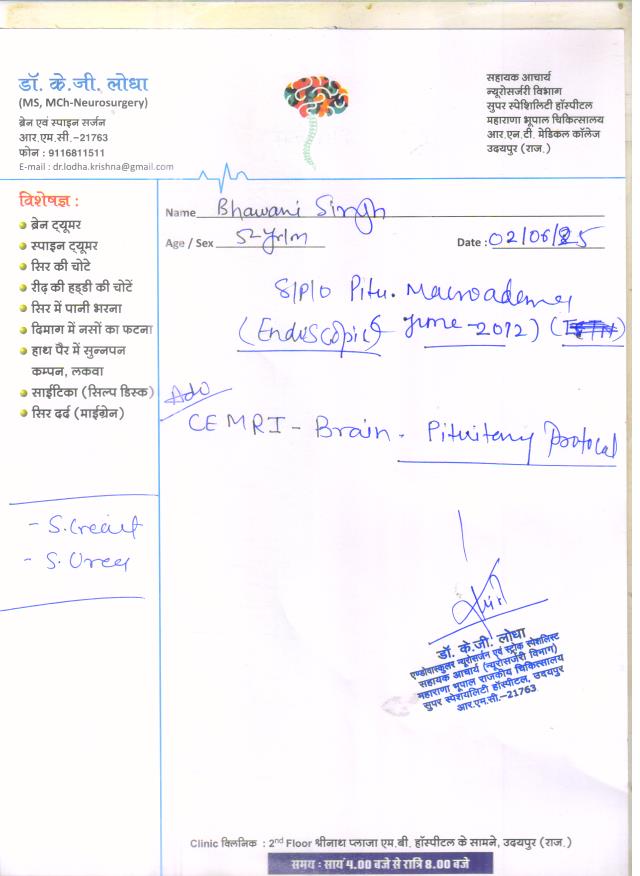 डॉ. के.जी. लोधा
(MS, MCh-Neurosurgery)
ब्रेन एवं स्पाइन सर्जन
आर.एम.सी.–21763
फोन : 9116811511
E-mail : dr.lodha.krishna@gmail.com
सहायक आचार्य
न्यूरोसर्जरी विभाग
सुपर स्पेशिलिटी हॉस्पीटल
महाराणा भूपाल चिकित्सालय
आर.एन.टी. मेडिकल कॉलेज
उदयपुर (राज.)
विशेषज्ञ :
ब्रेन ट्यूमर
स्पाइन ट्यूमर
सिर की चोटे
रीढ़ की हड्डी की चोटें
सिर में पानी भरना
दिमाग में नसों का फटना
हाथ पैर में सुन्नपन
कम्पन, लकवा
साईटिका (सिल्प डिस्क)
सिर दर्द (माईग्रेन)
- S. Creait
- S. Urea
Name Bhawani Singh
Age / Sex 52 Yr/m
Date : 02/06/25
S/P/O Pitu. Macroadenoma
(Endoscopic June-2012)
Adv
CEMRI - Brain - Pituitary Protocal
डॉ. के.जी. लोधा
एण्डोवास्कुलर न्यूरोसर्जन एवं स्ट्रोक स्पेशलिस्ट
सहायक आचार्य (न्यूरोसर्जरी विभाग)
महाराणा भूपाल राजकीय चिकित्सालय
सुपर स्पेशयलिटी हॉस्पीटल, उदयपुर
आर.एम.सी.–21763
Clinic क्लिनिक : 2nd Floor श्रीनाथ प्लाजा एम.बी. हॉस्पीटल के सामने, उदयपुर (राज.)
समय : सायं 4.00 बजे से रात्रि 8.00 बजे